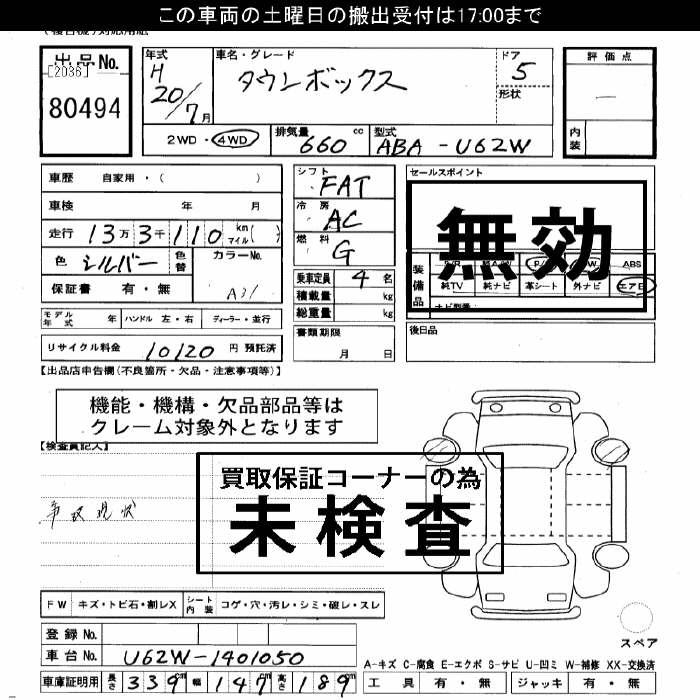 この車両の土曜日の搬出受付は17:00まで
出品No.
[2036]
80494
年式
H
20/7月
車名・グレード
タウンボックス
ドア
5
形状
評価点
内装
2WD・4WD
排気量
660 cc
型式
ABA - U62W
車歴 自家用・( )
車検 年 月
走行 13万3千110 km マイル( )
色 シルバー
色替
カラーNo.
A31
保証書 有・無
シフト
FAT
冷房
AC
燃料
G
乗車定員 4 名
積載量 kg
総重量 kg
セールスポイント
無効
装備品
ABS
純TV 純ナビ 革シート 外ナビ エアB
モデル年式 年 ハンドル 左・右 ディーラー・並行
書類期限
月 日
後日品
リサイクル料金 10120 円 預託済
【出品店申告欄(不良箇所・欠品・注意事項等)】
機能・機構・欠品部品等は
クレーム対象外となります
【検査員記入】
買取保証コーナーの為
未検査
事故現状
FW キズ・トビ石・割レX
シート内装 コゲ・穴・汚レ・シミ・破レ・スレ
スペア
登録No.
車台No. U62W-1401050
車庫証明用 長さ 339m 幅 147m 高さ 189m
A-キズ C-腐食 E-エクボ S-サビ U-凹ミ W-補修 XX-交換済
工具 有・無 ジャッキ 有・無